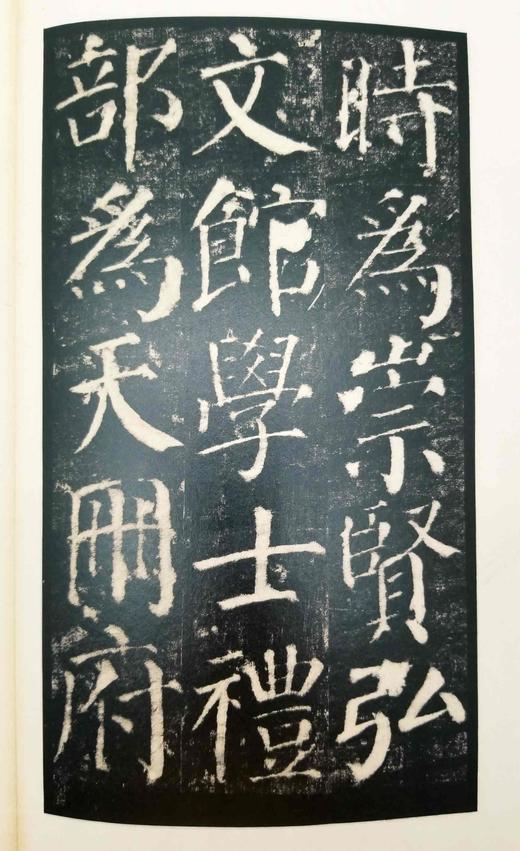 時為崇賢弘
文館學士禮
部為天冊府